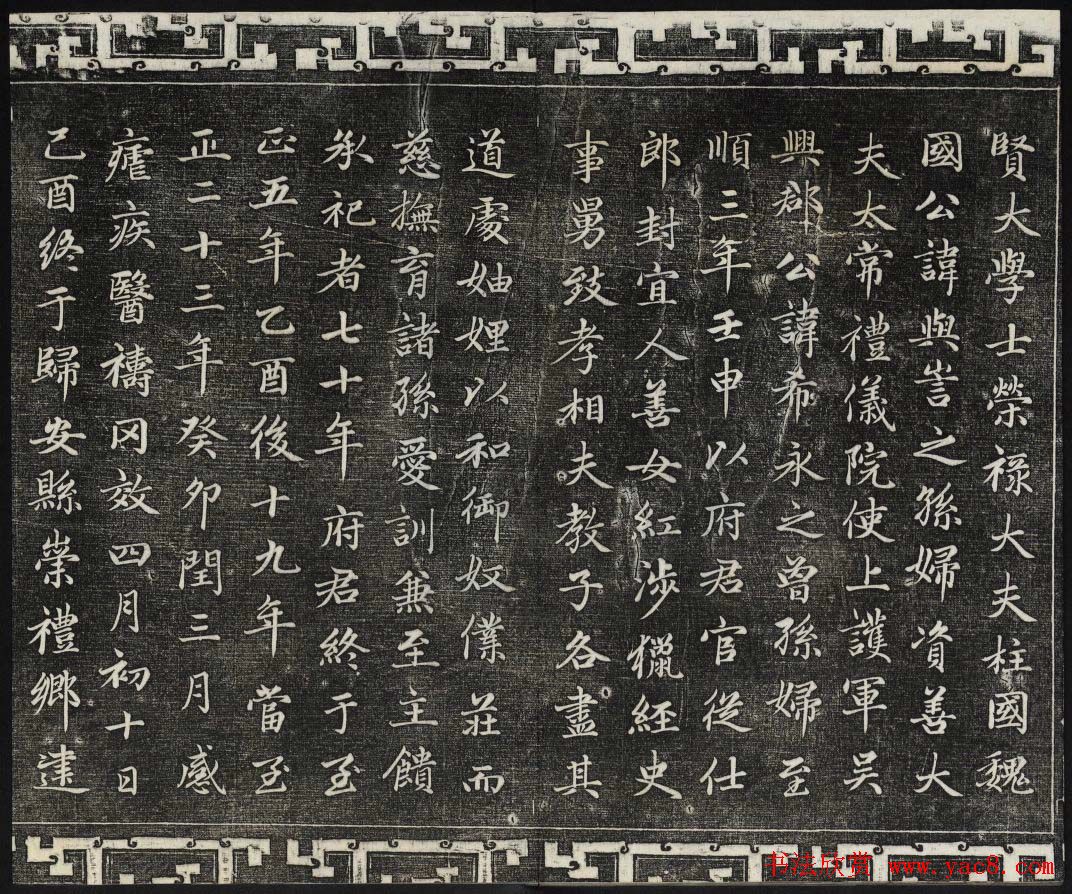 賢大學士榮祿大夫柱國魏
國公諱與訔之孫婦資善大
夫太常禮儀院使上護軍吴
興郡公諱希永之曾孫婦至
順三年壬申以府君官從仕
郎封宜人善女紅涉獵経史
事舅致孝相夫教子各盡其
道處妯娌以和御奴僕莊而
慈撫育諸孫愛訓兼至主饋
承祀者七十年府君終于至
正五年乙酉後十九年當至
正二十三年癸卯閏三月感
瘧疾醫禱罔效四月初十日
己酉終于歸安縣崇禮鄉建
书法欣赏 www.yac8.com